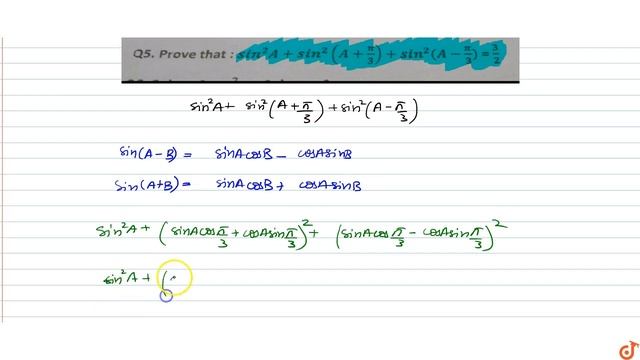 Q5. Prove that : sin²A + sin²(A + π/3) + sin²(A − π/3) = 3/2
sin²A + sin²(A + π/3) + sin²(A − π/3)
sin(A − B) = sinA cosB − cosA sinB
sin(A+B) = sinA cosB + cosA sinB
sin²A + (sinA cos π/3 + cosA sin π/3)² + (sinA cos π/3 − cosA sin π/3)²
sin²A + (